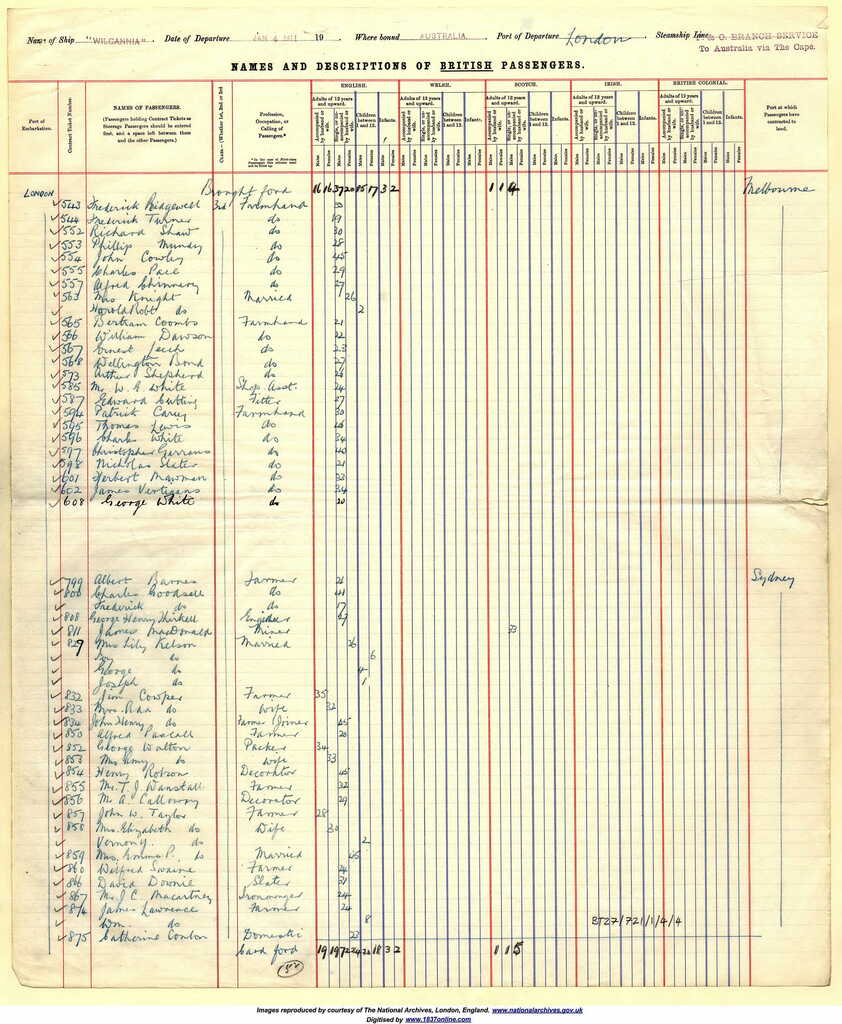 Name of Ship "WILCANNIA". Date of Departure JAN 4 1911 19 . Where bound AUSTRALIA. Port of Departure London Steamship Line P. & O. BRANCH SERVICE
To Australia via The Cape.
NAMES AND DESCRIPTIONS OF BRITISH PASSENGERS.
Port of Embarkation.
Contract Ticket Number
NAMES OF PASSENGERS.
(Passengers holding Contract Tickets as Steerage Passengers should be entered first, and a space left between them and the other Passengers.)
CLASS—(Whether 1st, 2nd or 3rd
Profession, Occupation, or Calling of Passengers.*
ENGLISH. WELSH. SCOTCH. IRISH. BRITISH COLONIAL.
Adults of 12 years and upward. Children between 1 and 12. Infants.
Accompanied by husband or wife.
Males Females
Port at which Passengers have contracted to land.
LONDON Brought ford 16 16 37 20 15 17 3 2 1 1 4 Melbourne
543 Frederick Ridgewell 3rd Farmhand
544 Frederick Turner do 19
552 Richard Shaw do 30
553 Phillip Munday do 28
554 John Cowley do 45
555 Charles Pace do 29
557 Alfred do 27
563 Mrs Knight Married 26
Harold Robt do 2
565 Bertram Coombs Farmhand 21
566 William Dawson do 22
567 Ernest Leech do 23
568 Wellington Bond do 27
573 Arthur Shepherd do
585 Mr W. G. White Shop Asst. 24
587 Edward Fitter 27
594 Patrick Carey Farmhand 30
595 Thomas Lewis do
596 Charles White do 34
597 Christopher Garrans do 40
598 Nicholas Slater do 21
601 Herbert Mawman do 33
602 James Vertigans do 34
608 George White do 20
799 Albert Barnes Farmer 21 Sydney
800 Charles Goodsell do 41
Frederick do do 17
808 George Henry Thirkell Engineer
811 James MacDonald Miner 33
829 Mrs Lily Kelson Married 26
do 6
George do 4
Joseph do 1
832 Jim Cowper Farmer 35
833 Mrs. Ada do Wife 32
834 John Henry do Farmer (Joiner 45
850 Alfred Pascall Farmer 20
852 George Walton Packer 34
853 Mrs Amy do Wife 33
854 Henry Robson Decorator 45
855 Mr. T. J. Wanstall Farmer 32
856 Mr A. Calloway Decorator 29
857 John W. Taylor Farmer 28
858 Mrs. Elizabeth do Wife 30
Vernon G. do 2
859 Mrs. Emma P. do Married 45
860 Wilfred Swaine Farmer 24
866 David Downie Slater 31
867 Mr J C. Macartney Ironmonger 24
874 James Lawrence Farmer 24
Wm. do 8 BT27/721/1/4/4
875 Catherine Conlon Domestic 23
Card ford 19 19 72 24 22 18 3 2 1 1 5
Images reproduced by courtesy of The National Archives, London, England. www.nationalarchives.gov.uk
Digitised by www.1837online.com